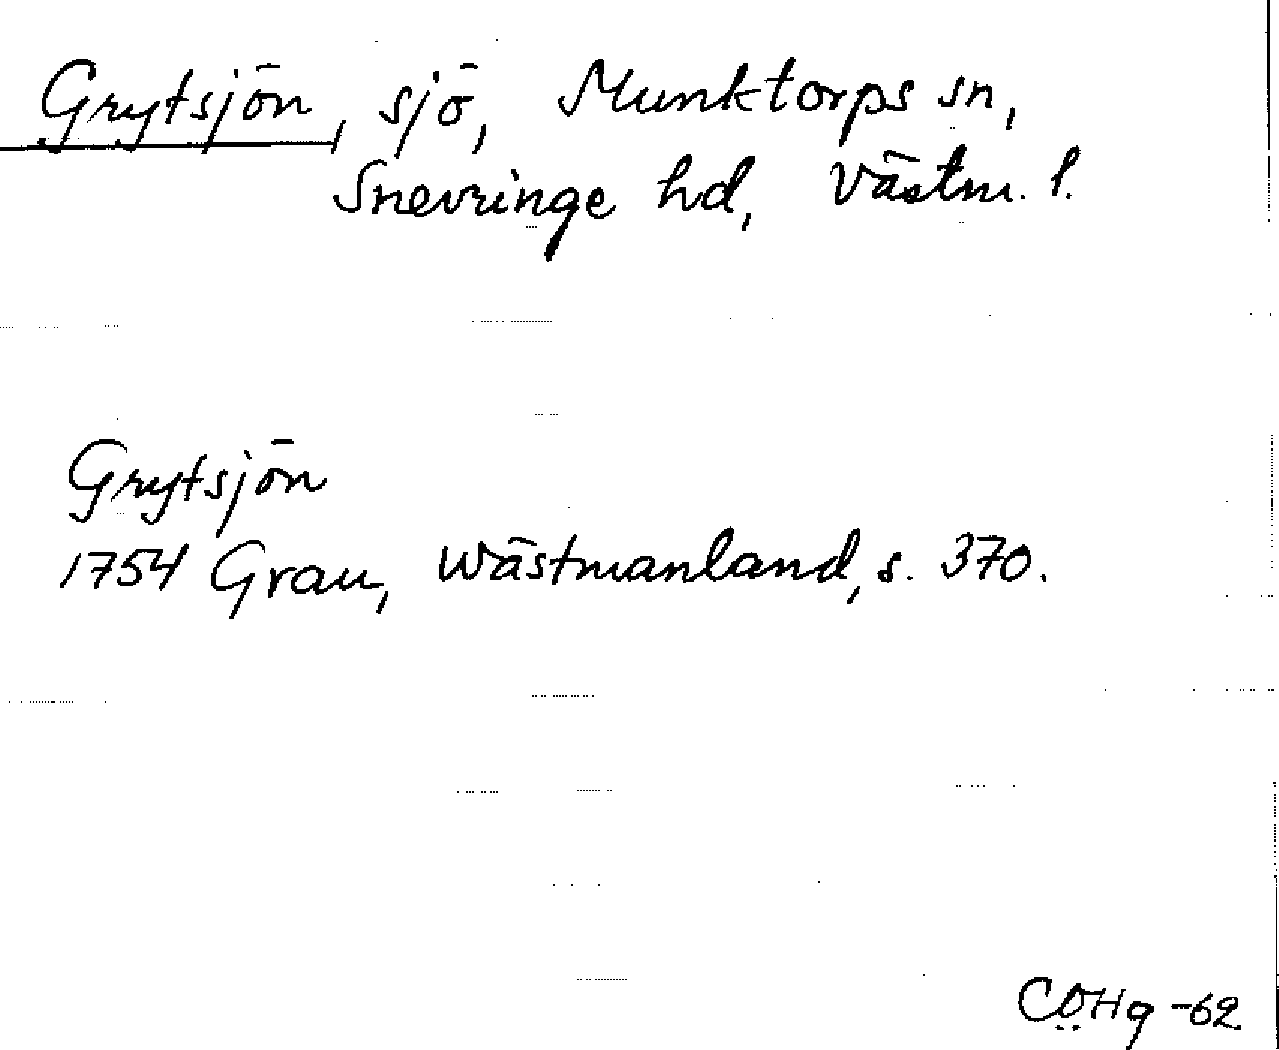 Grytsjön, sjö, Munktorps sn,
Snevringe hd, Västm. l.
Grytsjön
1754 Grau, Wästmanland, s. 370.
CÖHg -62